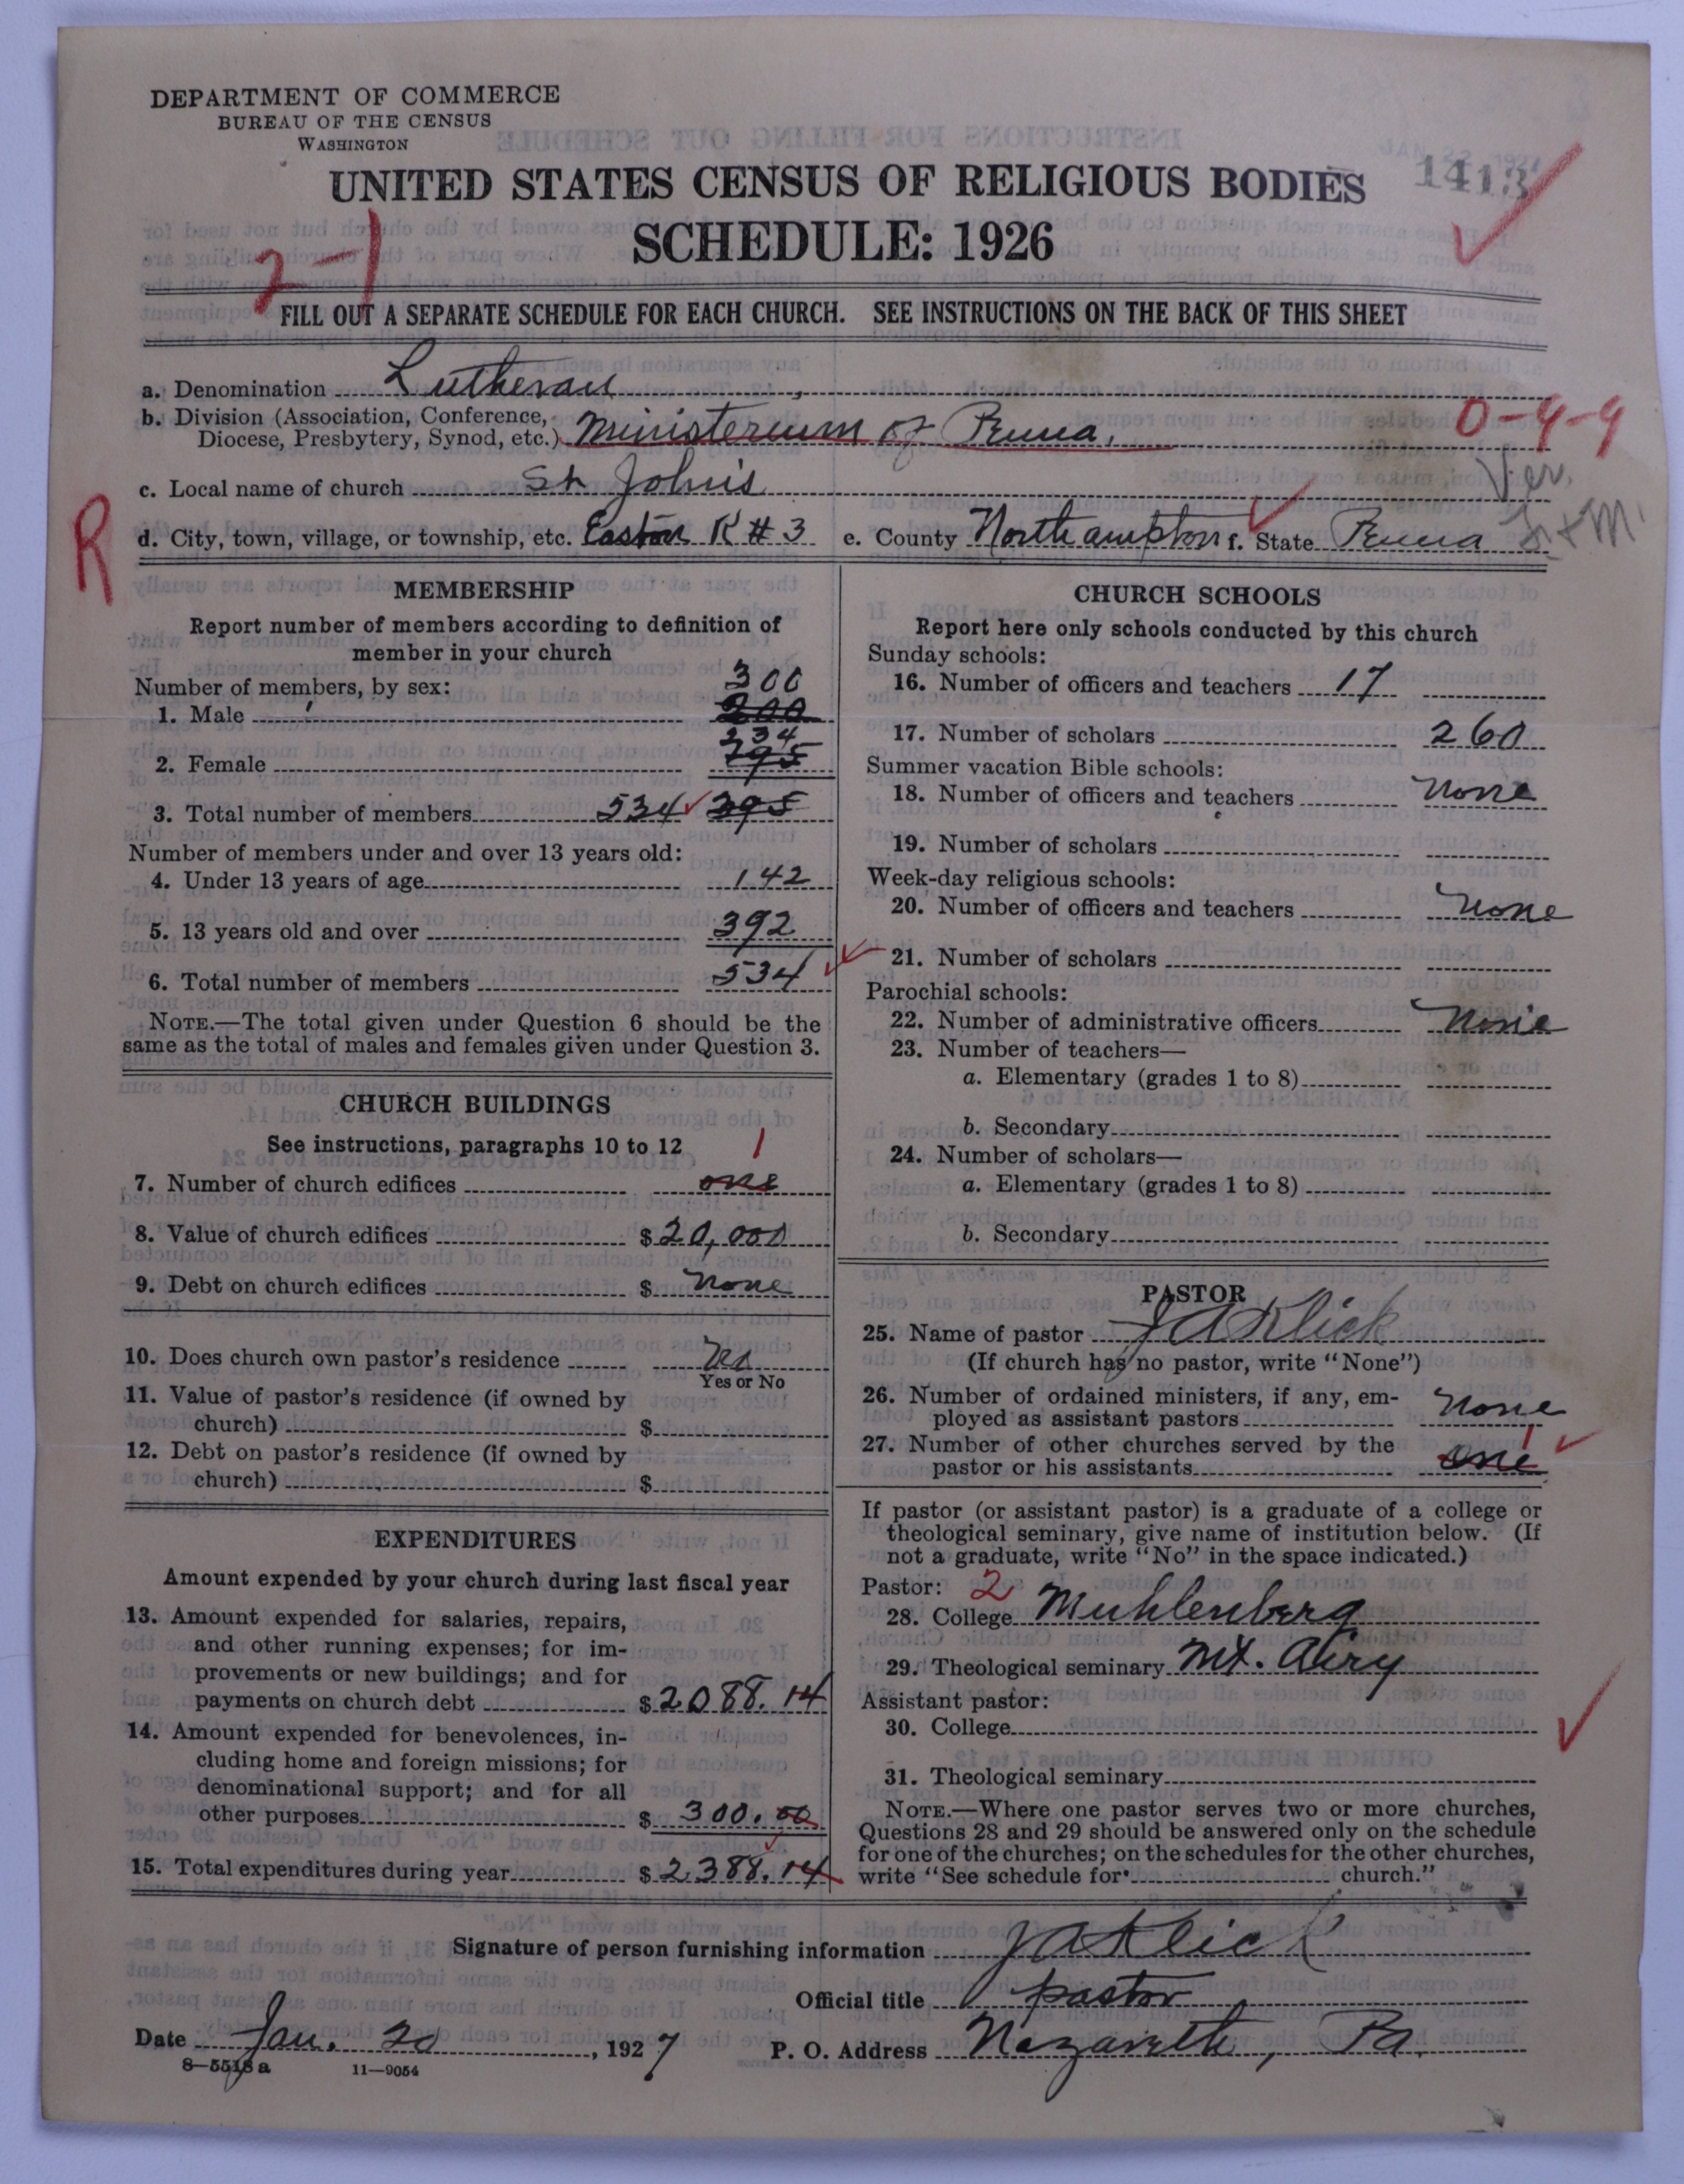 DEPARTMENT OF COMMERCE
BUREAU OF THE CENSUS
WASHINGTON
UNITED STATES CENSUS OF RELIGIOUS BODIES
1413
SCHEDULE: 1926
2-1
FILL OUT A SEPARATE SCHEDULE FOR EACH CHURCH. SEE INSTRUCTIONS ON THE BACK OF THIS SHEET
a. Denomination Lutheran
b. Division (Association, Conference,
Diocese, Presbytery, Synod, etc.) Ministerium of Penna.
0-4-9
c. Local name of church St. John's
Ver.
R
d. City, town, village, or township, etc. Easton R # 3 e. County Northampton f. State Penna
MEMBERSHIP
Report number of members according to definition of
member in your church
Number of members, by sex:
300
1. Male 200
234
2. Female 295
3. Total number of members 534 395
Number of members under and over 13 years old:
4. Under 13 years of age 142
5. 13 years old and over 392
6. Total number of members 534
NOTE.—The total given under Question 6 should be the
same as the total of males and females given under Question 3.
CHURCH BUILDINGS
See instructions, paragraphs 10 to 12
1
7. Number of church edifices one
8. Value of church edifices $ 20,000
9. Debt on church edifices $ none
10. Does church own pastor's residence Yes
Yes or No
11. Value of pastor's residence (if owned by
church) $
12. Debt on pastor's residence (if owned by
church) $
EXPENDITURES
Amount expended by your church during last fiscal year
13. Amount expended for salaries, repairs,
and other running expenses; for im-
provements or new buildings; and for
payments on church debt $ 2088.14
14. Amount expended for benevolences, in-
cluding home and foreign missions; for
denominational support; and for all
other purposes $ 300.00
15. Total expenditures during year $ 2,388.14
CHURCH SCHOOLS
Report here only schools conducted by this church
Sunday schools:
16. Number of officers and teachers 17
17. Number of scholars 260
Summer vacation Bible schools:
18. Number of officers and teachers none
19. Number of scholars
Week-day religious schools:
20. Number of officers and teachers none
21. Number of scholars
Parochial schools:
22. Number of administrative officers none
23. Number of teachers—
a. Elementary (grades 1 to 8)
b. Secondary
24. Number of scholars—
a. Elementary (grades 1 to 8)
b. Secondary
PASTOR
25. Name of pastor J A Klick
(If church has no pastor, write "None")
26. Number of ordained ministers, if any, em-
ployed as assistant pastors none
27. Number of other churches served by the
pastor or his assistants one 1
If pastor (or assistant pastor) is a graduate of a college or
theological seminary, give name of institution below. (If
not a graduate, write "No" in the space indicated.)
Pastor: 2
28. College Muhlenberg
29. Theological seminary Mt. Airy
Assistant pastor:
30. College
31. Theological seminary
NOTE.—Where one pastor serves two or more churches,
Questions 28 and 29 should be answered only on the schedule
for one of the churches; on the schedules for the other churches,
write "See schedule for church."
Signature of person furnishing information J A Klick
Official title pastor
Date Jan. 20, 1927 P. O. Address Nazareth, Pa.
8—5518 a 11—9054